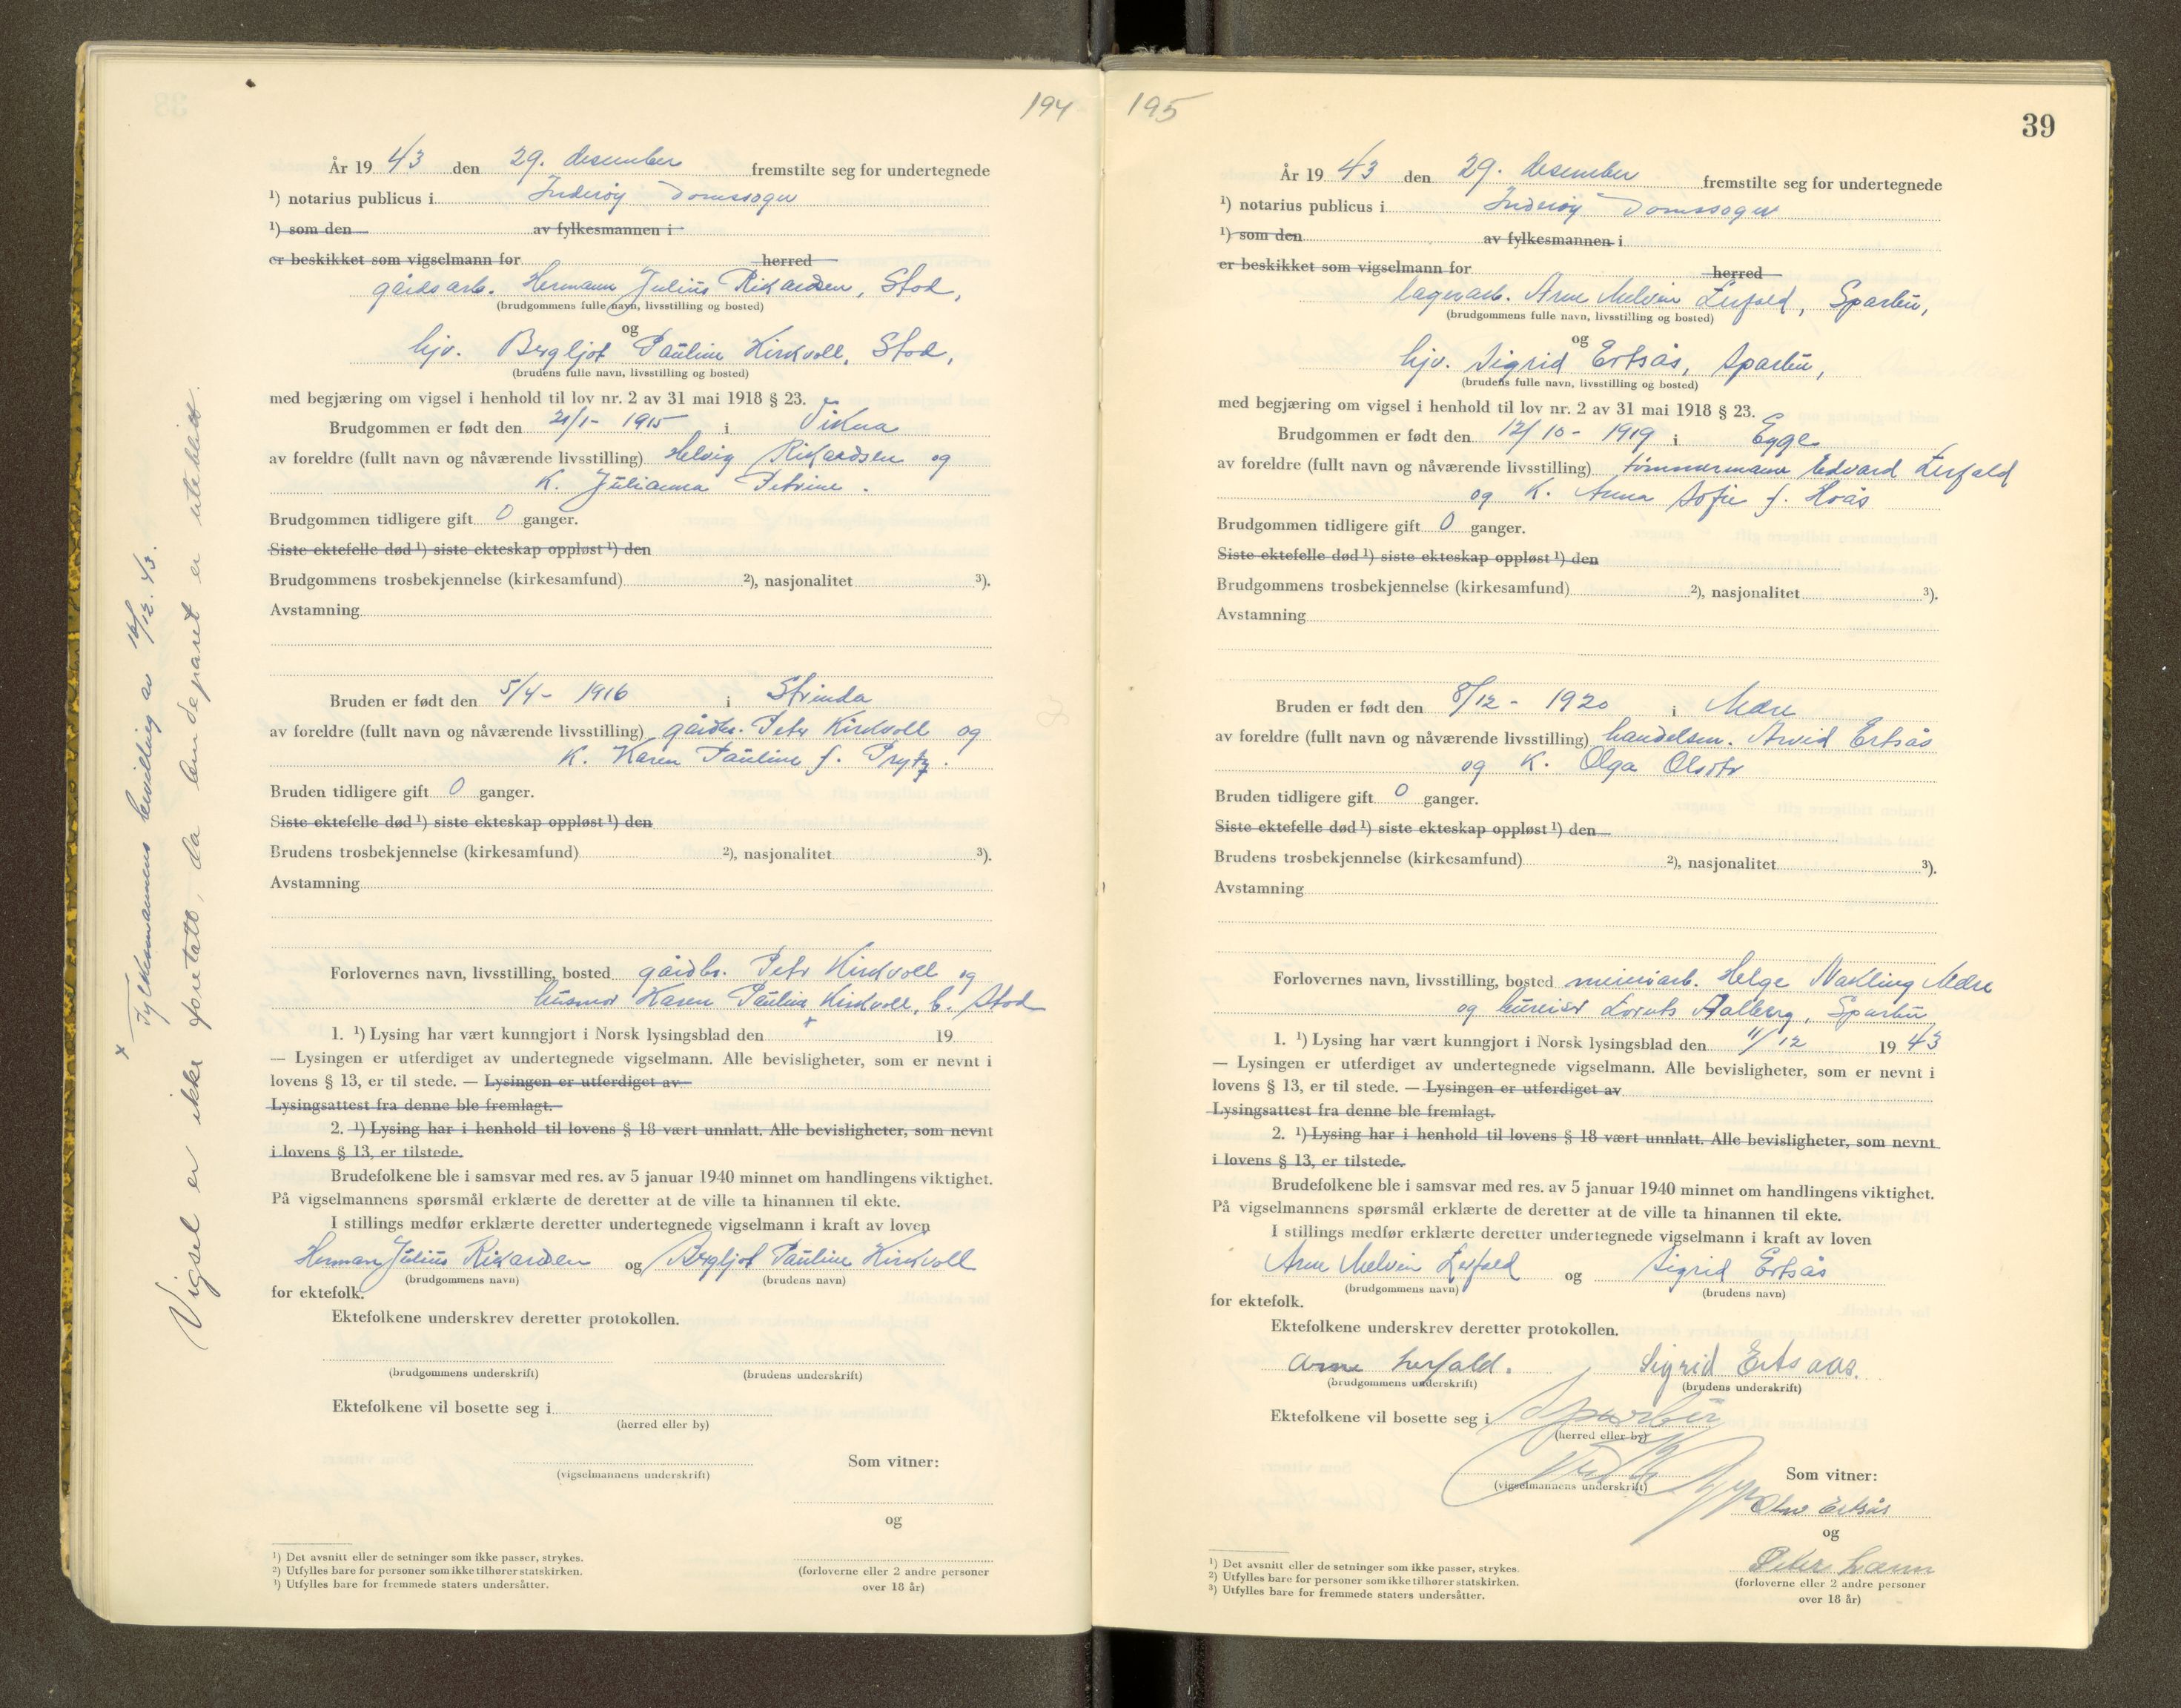 194
År 19 43 den 29. desember fremstilte seg for undertegnede
¹) notarius publicus i Inderøy Domssogn
¹) som den av fylkesmannen i
er beskikket som vigselmann for herred
gårdsarb. Hermann Julius Rikardsen, Stod,
(brudgommens fulle navn, livsstilling og bosted)
og
hjv. Bergljot Pauline Kirkvoll, Stod,
(brudens fulle navn, livsstilling og bosted)
med begjæring om vigsel i henhold til lov nr. 2 av 31 mai 1918 § 23.
Brudgommen er født den 21/1 - 1915 i Vikna
av foreldre (fullt navn og nåværende livsstilling) Helvig Rikardsen og
K. Julianna Petrine.
Brudgommen tidligere gift 0 ganger.
Siste ektefelle død ¹) siste ekteskap oppløst ¹) den
Brudgommens trosbekjennelse (kirkesamfund) ²), nasjonalitet ³).
Avstamning
Bruden er født den 5/4 - 1916 i Strinda
av foreldre (fullt navn og nåværende livsstilling) gårdbr. Peter Kirkvoll og
K. Karen Pauline f. Prytz.
Bruden tidligere gift 0 ganger.
Siste ektefelle død ¹) siste ekteskap oppløst ¹) den
Brudens trosbekjennelse (kirkesamfund) ²), nasjonalitet ³).
Avstamning
Forlovernes navn, livsstilling, bosted gårdbr. Peter Kirkvoll og
husmor Karen Pauline Kirkvoll, b. Stod
1. ¹) Lysing har vært kunngjort i Norsk lysingsblad den x 19
— Lysingen er utferdiget av undertegnede vigselmann. Alle bevisligheter, som er nevnt i
lovens § 13, er til stede. — Lysingen er utferdiget av
Lysingsattest fra denne ble fremlagt.
2. ¹) Lysing har i henhold til lovens § 18 vært unnlatt. Alle bevisligheter, som nevnt
i lovens § 13, er tilstede.
Brudefolkene ble i samsvar med res. av 5 januar 1940 minnet om handlingens viktighet.
På vigselmannens spørsmål erklærte de deretter at de ville ta hinannen til ekte.
I stillings medfør erklærte deretter undertegnede vigselmann i kraft av loven
Herman Julius Rikardsen og Bergljot Pauline Kirkvoll
(brudgommens navn) (brudens navn)
for ektefolk.
Ektefolkene underskrev deretter protokollen.
(brudgommens underskrift) (brudens underskrift)
Ektefolkene vil bosette seg i
(herred eller by)
Som vitner:
(vigselmannens underskrift)
og
(forloverne eller 2 andre personer
over 18 år)
¹) Det avsnitt eller de setninger som ikke passer, strykes.
²) Utfylles bare for personer som ikke tilhører statskirken.
³) Utfylles bare for fremmede staters undersåtter.
x Fylkesmannens bevilling av 16/12. 43.
Vigsel er ikke foretatt, da brudeparet er uteblitt.
195
39
År 19 43 den 29. desember fremstilte seg for undertegnede
¹) notarius publicus i Inderøy Domssogn
¹) som den av fylkesmannen i
er beskikket som vigselmann for herred
lagerarb. Arne Melvin Lerfald, Sparbu,
(brudgommens fulle navn, livsstilling og bosted)
og
hjv. Sigrid Ertsås, Sparbu,
(brudens fulle navn, livsstilling og bosted)
med begjæring om vigsel i henhold til lov nr. 2 av 31 mai 1918 § 23.
Brudgommen er født den 12/10 - 1919 i Egge
av foreldre (fullt navn og nåværende livsstilling) tømmermann Edvard Lerfald
og K. Anna Sofie f. Hoås
Brudgommen tidligere gift 0 ganger.
Siste ektefelle død ¹) siste ekteskap oppløst ¹) den
Brudgommens trosbekjennelse (kirkesamfund) ²), nasjonalitet ³).
Avstamning
Bruden er født den 8/12 - 1920 i Mære
av foreldre (fullt navn og nåværende livsstilling) handelsm. Arvid Ertsås
og K. Olga Olsdtr
Bruden tidligere gift 0 ganger.
Siste ektefelle død ¹) siste ekteskap oppløst ¹) den
Brudens trosbekjennelse (kirkesamfund) ²), nasjonalitet ³).
Avstamning
Forlovernes navn, livsstilling, bosted meieriarb. Helge Nakling Mære
og Aalberg, Sparbu
1. ¹) Lysing har vært kunngjort i Norsk lysingsblad den 11/12 19 43
— Lysingen er utferdiget av undertegnede vigselmann. Alle bevisligheter, som er nevnt i
lovens § 13, er til stede. — Lysingen er utferdiget av
Lysingsattest fra denne ble fremlagt.
2. ¹) Lysing har i henhold til lovens § 18 vært unnlatt. Alle bevisligheter, som nevnt
i lovens § 13, er tilstede.
Brudefolkene ble i samsvar med res. av 5 januar 1940 minnet om handlingens viktighet.
På vigselmannens spørsmål erklærte de deretter at de ville ta hinannen til ekte.
I stillings medfør erklærte deretter undertegnede vigselmann i kraft av loven
Arne Melvin Lerfald og Sigrid Ertsås
(brudgommens navn) (brudens navn)
for ektefolk.
Ektefolkene underskrev deretter protokollen.
Arne Lerfald. Sigrid Ertsaas.
(brudgommens underskrift) (brudens underskrift)
Ektefolkene vil bosette seg i Sparbu
(herred eller by)
Som vitner:
(vigselmannens underskrift)
Ertsås
og
Peter
(forloverne eller 2 andre personer
over 18 år)
¹) Det avsnitt eller de setninger som ikke passer, strykes.
²) Utfylles bare for personer som ikke tilhører statskirken.
³) Utfylles bare for fremmede staters undersåtter.